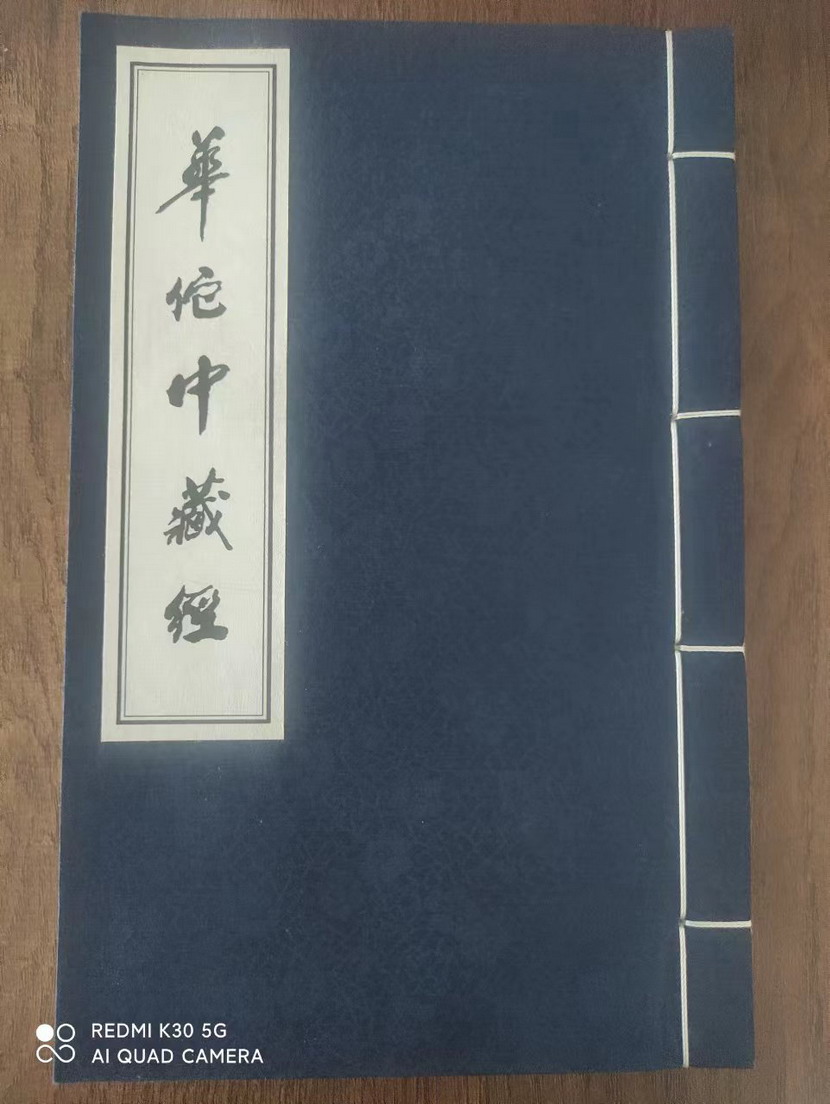 華佗中藏經
REDMI K30 5G
AI QUAD CAMERA